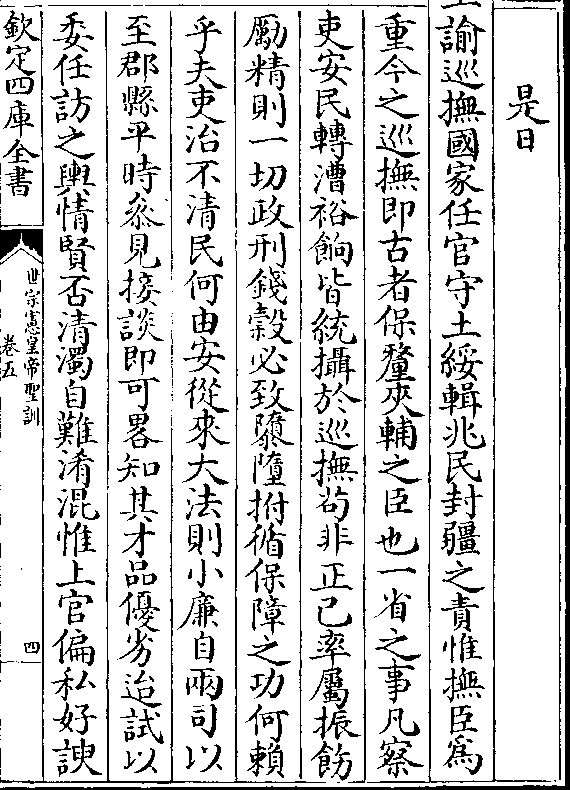 是日
上諭巡撫國家任官守土綏輯兆民封疆之責惟撫臣爲
重今之巡撫即古者保釐夾輔之臣也一省之事凡察
吏安民轉漕裕餉皆統攝於巡撫茍非正已率屬振飭
勵精則一切政刑錢穀必致隳墮拊循保障之功何賴
乎夫吏治不清民何由安從來大法則小廉自兩司以
至郡縣平時叅見接談即可畧知其才品優劣迨試以
委任訪之輿情賢否清濁自難淆混惟上官偏私好諛
欽定四庫全書
世宗憲皇帝聖訓
卷五
四